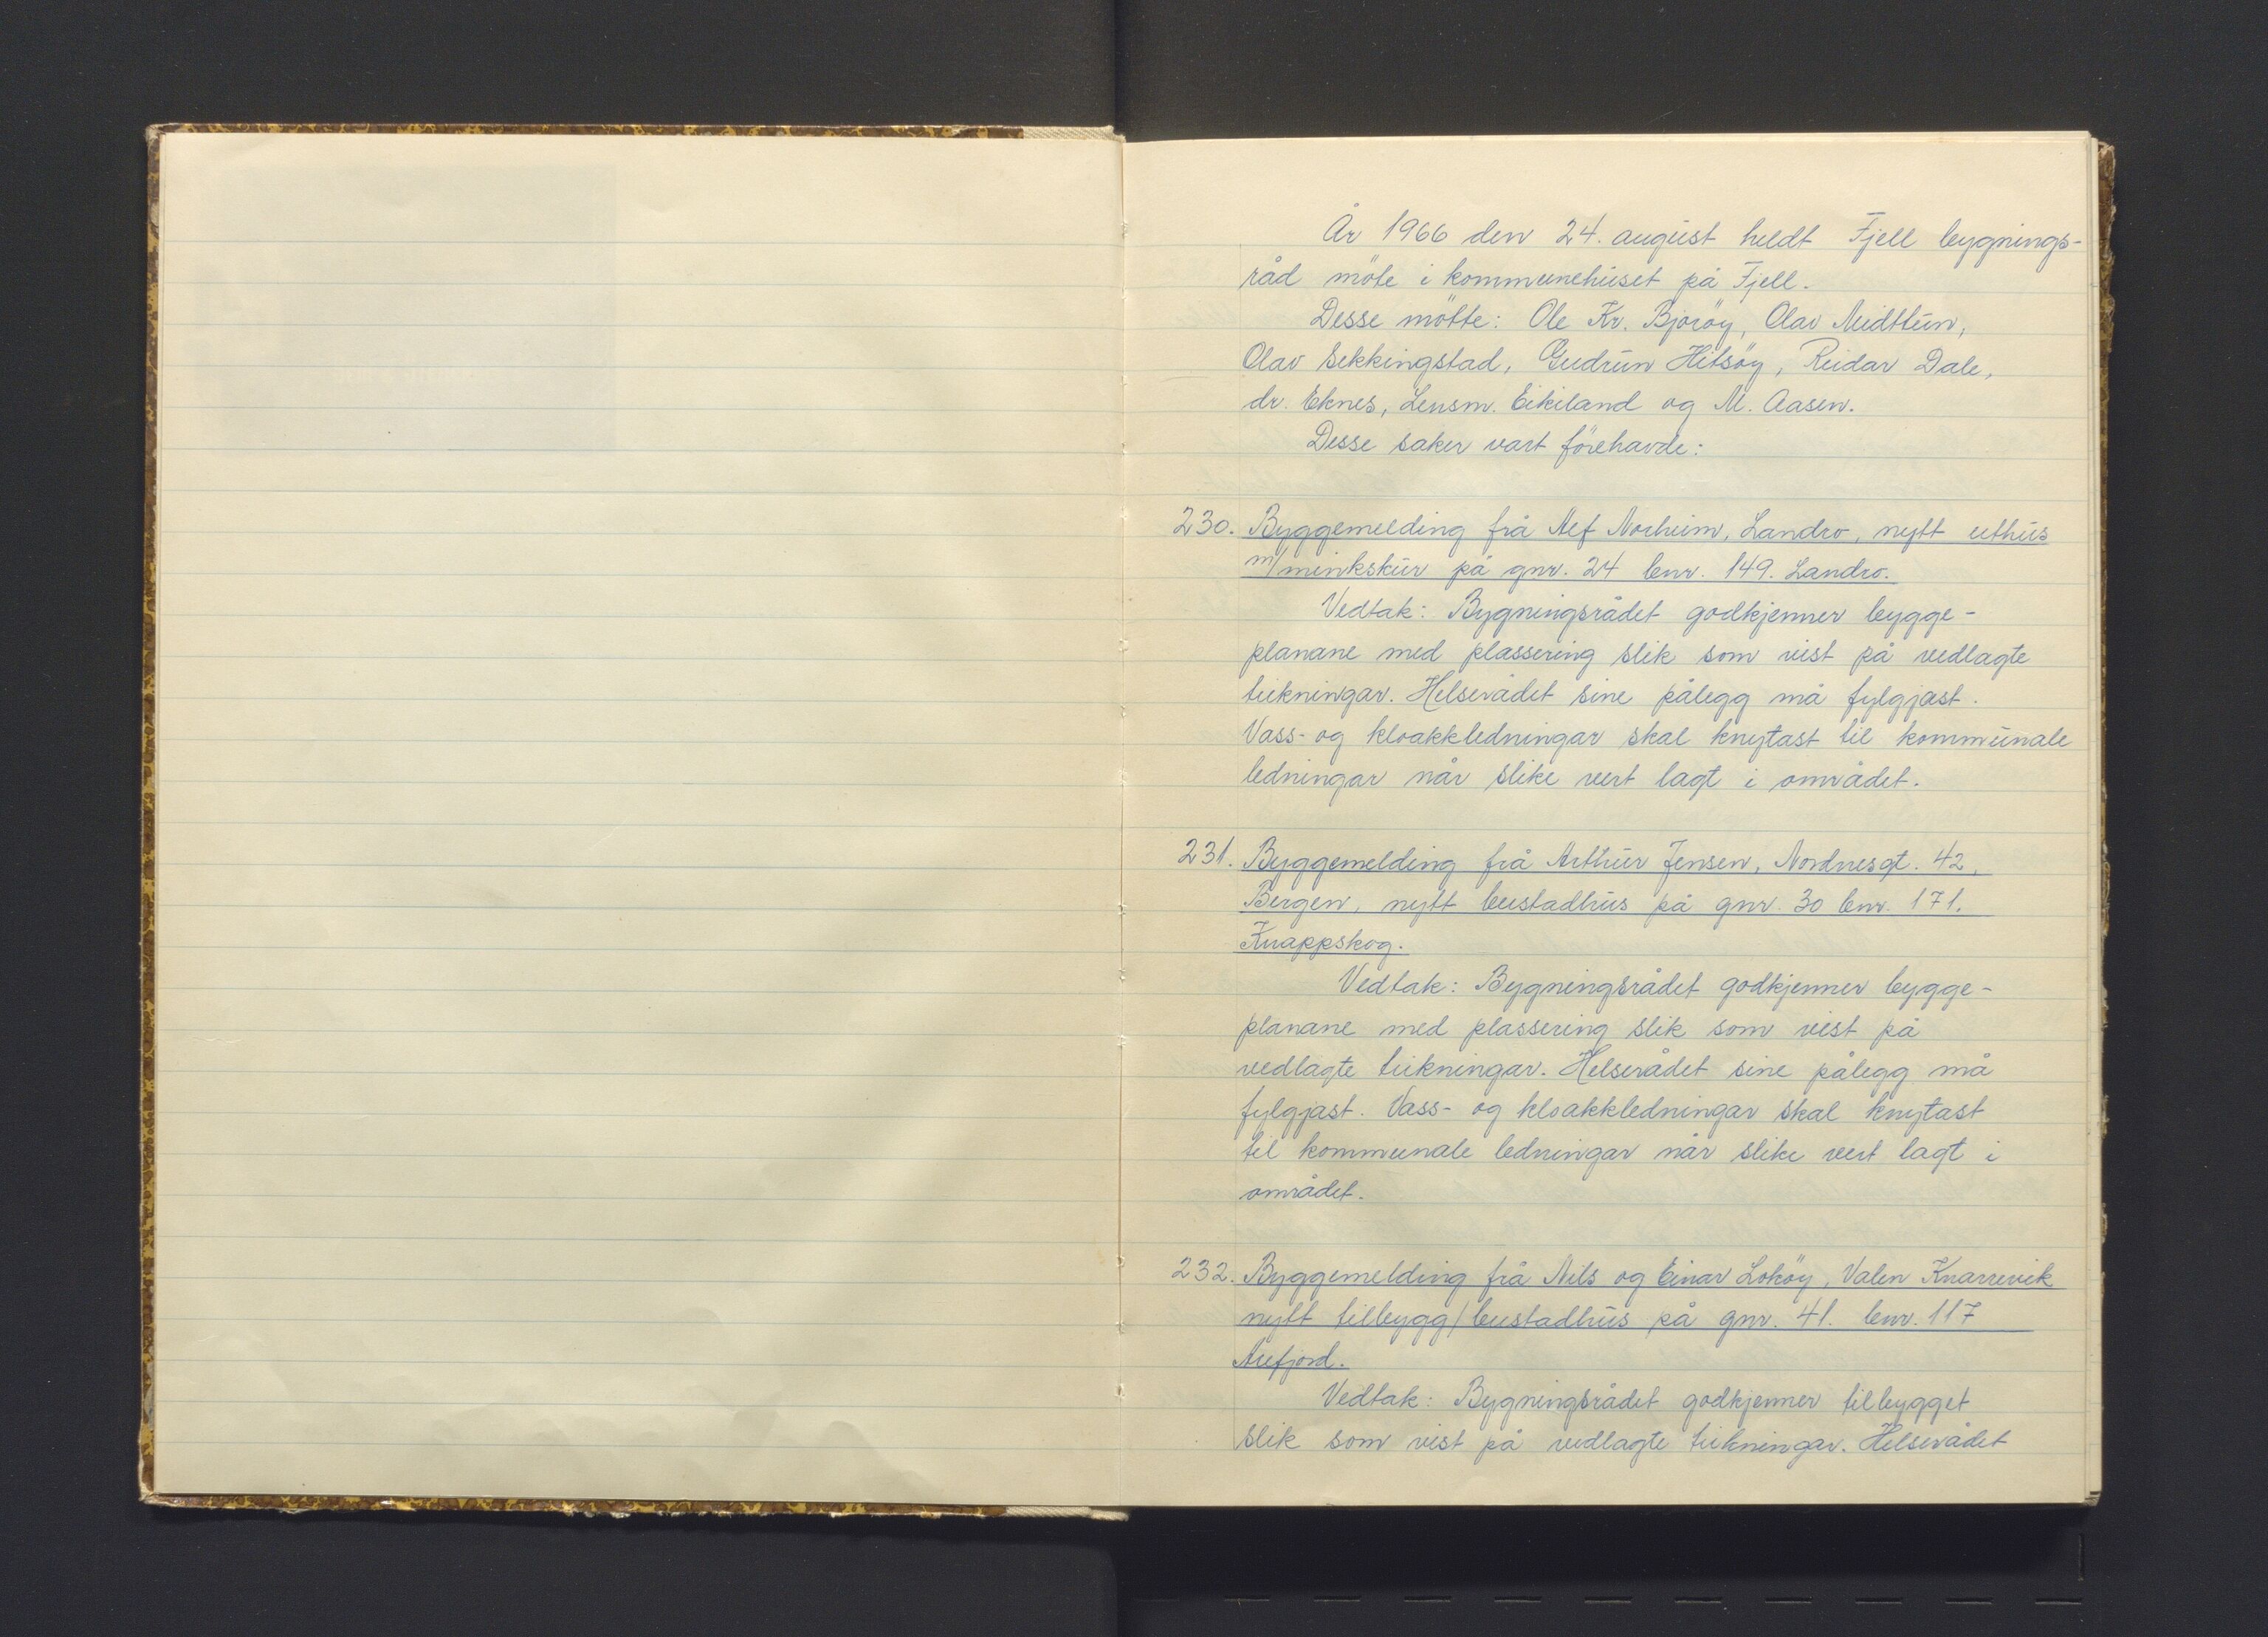 År 1966 den 24. august heldt Fjell bygnings-
råd möte i kommunehuset på Fjell.
Desse mötte: Ole Kr. Bjoröy, Olav Midttun,
Olav Sekkingstad, Gudrun Hitsöy, Reidar Dale,
dr. Eknes, Lensm. Eikiland og M. Aasen.
Desse saker vart förehavde:
230. Byggemelding frå Alf Norheim, Landro, nytt uthus
m/minkskur på gnr. 24 bnr. 149. Landro.
Vedtak: Bygningsrådet godkjenner bygge-
planane med plassering slik som vist på vedlagte
teikningar. Helserådet sine pålegg må fylgjast.
Vass- og kloakkledningar skal knytast til kommunale
ledningar når slike vert lagt i området.
231. Byggemelding frå Arthur Jensen, Nordnesgt. 42,
Bergen, nytt bustadhus på gnr. 30 bnr. 171.
Knappskog.
Vedtak: Bygningsrådet godkjenner bygge-
planane med plassering slik som vist på
vedlagte teikningar. Helserådet sine pålegg må
fylgjast. Vass- og kloakkledningar skal knytast
til kommunale ledningar når slike vert lagt i
området.
232. Byggemelding frå Nils og Einar Loköy, Valen Knarrevik
nytt tilbygg/bustadhus på gnr. 41. bnr. 117
Arefjord.
Vedtak: Bygningsrådet godkjenner tilbygget
slik som vist på vedlagte teikningar. Helserådet